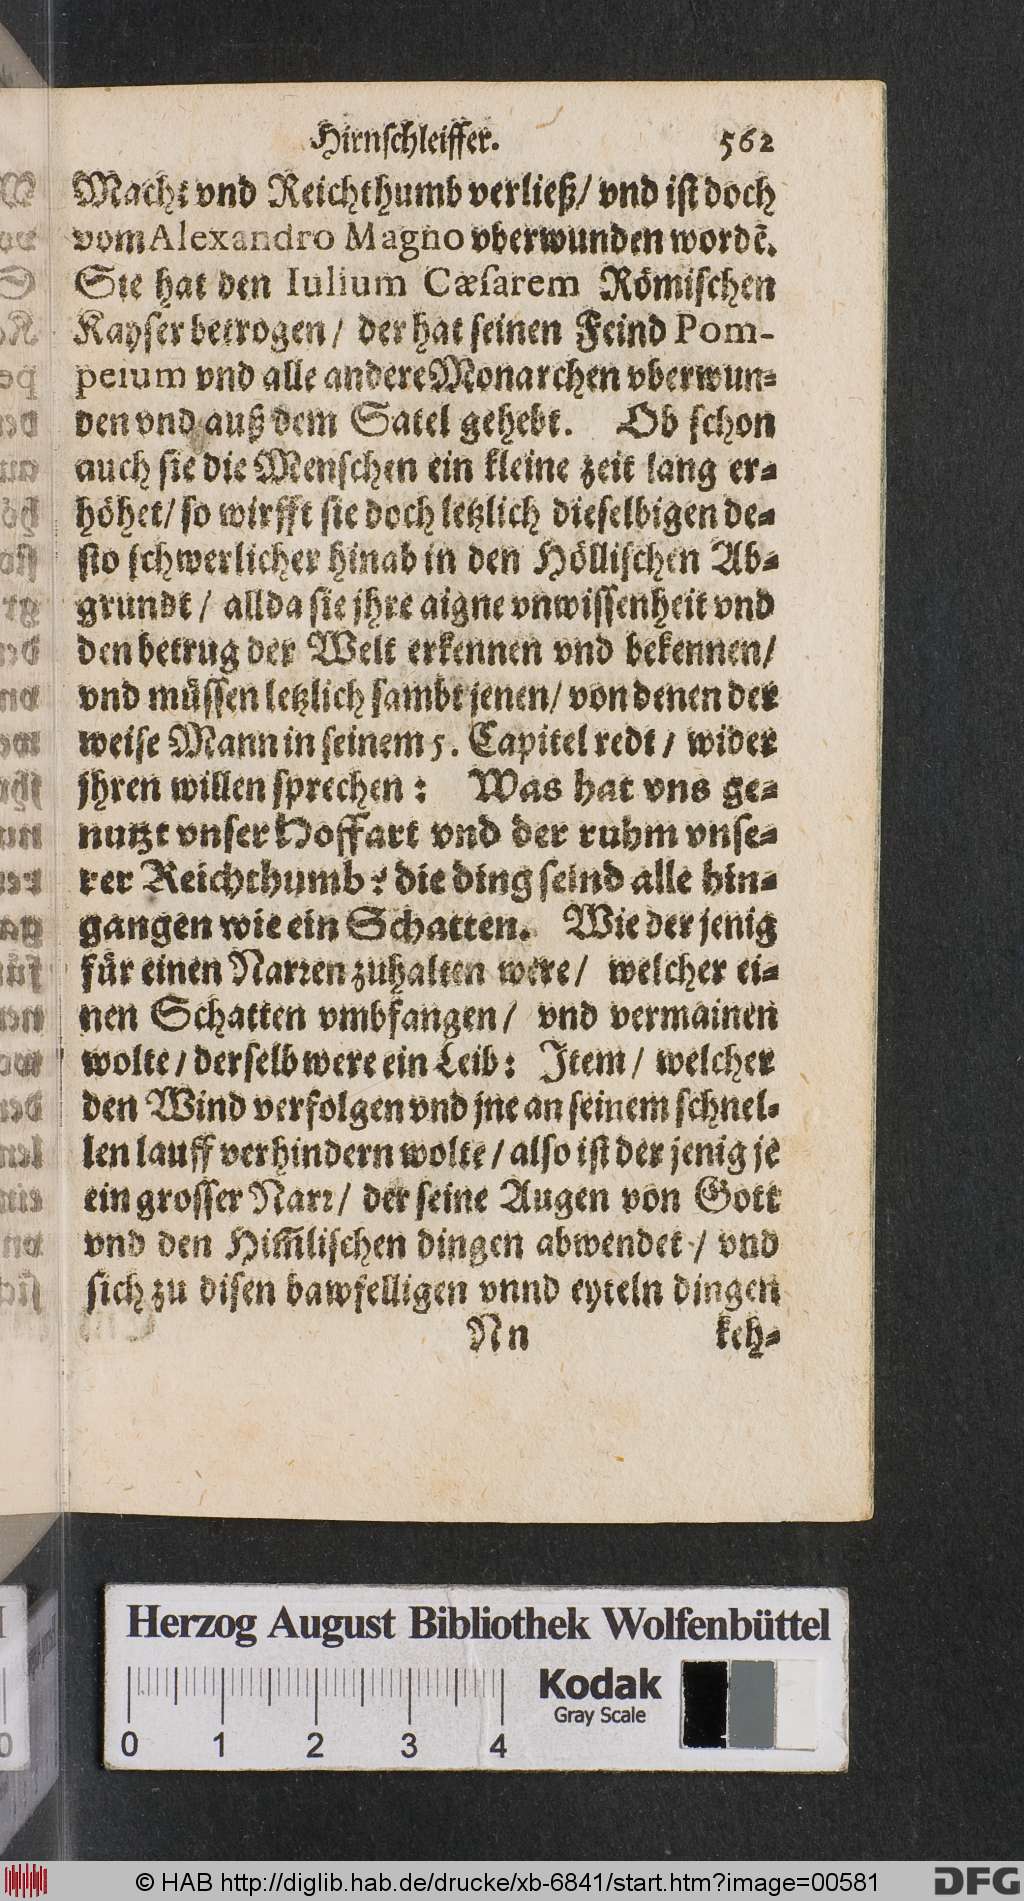 Hirnſchleiffer. 562
Macht vnd Reichthumb verließ/ vnd iſt doch
vom Alexandro Magno vberwunden wordẽ.
Sie hat den Iulium Cæſarem Römiſchen
Kayſer betrogen/ der hat ſeinen Feind Pom-
peium vnd alle andere Monarchen vberwun-
den vnd auß dem Satel gehebt. Ob ſchon
auch ſie die Menſchen ein kleine zeit lang er-
höhet/ ſo wirfft ſie doch letzlich dieſelbigen de-
ſto ſchwerlicher hinab in den Hölliſchen Ab-
grundt/ allda ſie jhre aigne vnwiſſenheit vnd
den betrug der Welt erkennen vnd bekennen/
vnd müſſen letzlich ſambt jenen/ von denen der
weiſe Mann in ſeinem 5. Capitel redt/ wider
jhren willen ſprechen: Was hat vns ge-
nutzt vnſer Hoffart vnd der ruhm vnſe-
rer Reichthumb? die ding ſeind alle hin-
gangen wie ein Schatten. Wie der jenig
für einen Narren zuhalten were/ welcher ei-
nen Schatten vmbfangen/ vnd vermainen
wolte/ derſelb were ein Leib: Item/ welcher
den Wind verfolgen vnd jne an ſeinem ſchnel-
len lauff verhindern wolte/ alſo iſt der jenig je
ein groſſer Narr/ der ſeine Augen von Gott
vnd den Him̃liſchen dingen abwendet/ vnd
ſich zu diſen bawfelligen vnnd eyteln dingen
Nn keh-
Herzog August Bibliothek Wolfenbüttel
Kodak
Gray Scale
0 1 2 3 4
© HAB http://diglib.hab.de/drucke/xb-6841/start.htm?image=00581
DFG